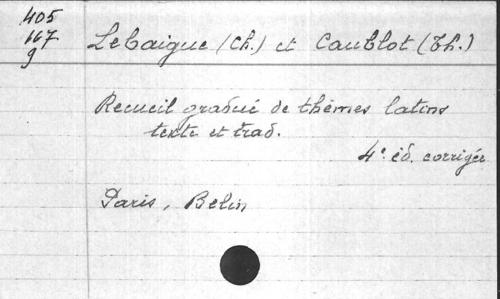 405
167
9
Lebaigue (Ch.) et Caublot (Th.)
Recueil gradué de thèmes latins
texte et trad.
4e éd. corrigée
Paris, Belin